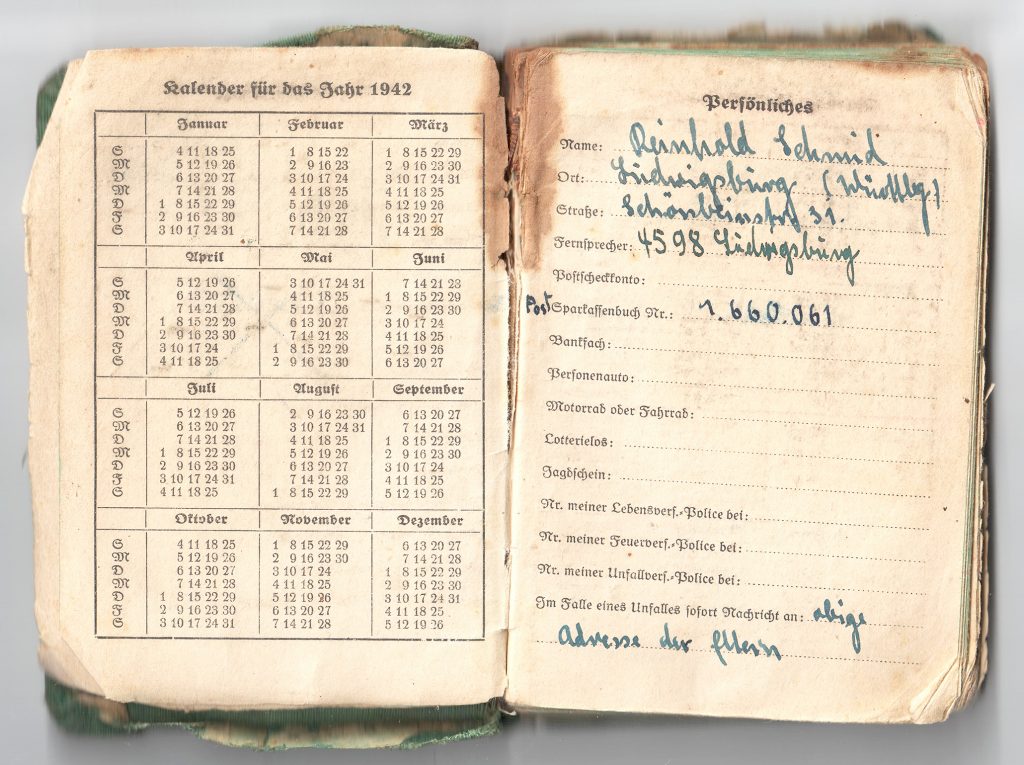 Kalender für das Jahr 1942
Januar Februar März
S 4 11 18 25 1 8 15 22 1 8 15 22 29
M 5 12 19 26 2 9 16 23 2 9 16 23 30
D 6 13 20 27 3 10 17 24 3 10 17 24 31
M 7 14 21 28 4 11 18 25 4 11 18 25
D 1 8 15 22 29 5 12 19 26 5 12 19 26
F 2 9 16 23 30 6 13 20 27 6 13 20 27
S 3 10 17 24 31 7 14 21 28 7 14 21 28
April Mai Juni
S 5 12 19 26 3 10 17 24 31 7 14 21 28
M 6 13 20 27 4 11 18 25 1 8 15 22 29
D 7 14 21 28 5 12 19 26 2 9 16 23 30
M 1 8 15 22 29 6 13 20 27 3 10 17 24
D 2 9 16 23 30 7 14 21 28 4 11 18 25
F 3 10 17 24 1 8 15 22 29 5 12 19 26
S 4 11 18 25 2 9 16 23 30 6 13 20 27
Juli August September
S 5 12 19 26 2 9 16 23 30 6 13 20 27
M 6 13 20 27 3 10 17 24 31 7 14 21 28
D 7 14 21 28 4 11 18 25 1 8 15 22 29
M 1 8 15 22 29 5 12 19 26 2 9 16 23 30
D 2 9 16 23 30 6 13 20 27 3 10 17 24
F 3 10 17 24 31 7 14 21 28 4 11 18 25
S 4 11 18 25 1 8 15 22 29 5 12 19 26
Oktober November Dezember
S 4 11 18 25 1 8 15 22 29 6 13 20 27
M 5 12 19 26 2 9 16 23 30 7 14 21 28
D 6 13 20 27 3 10 17 24 1 8 15 22 29
M 7 14 21 28 4 11 18 25 2 9 16 23 30
D 1 8 15 22 29 5 12 19 26 3 10 17 24 31
F 2 9 16 23 30 6 13 20 27 4 11 18 25
S 3 10 17 24 31 7 14 21 28 5 12 19 26
Persönliches
Name: Reinhold Schmid
Ort: Ludwigsburg (Württbg)
Straße: Schönbeinstr. 31.
Fernsprecher: 4598 Ludwigsburg
Postscheckkonto:
Post Sparkassenbuch Nr.: 1.660.061
Bankfach:
Personenauto:
Motorrad oder Fahrrad:
Lotterielos:
Jagdschein:
Nr. meiner Lebensvers.-Police bei:
Nr. meiner Feuervers.-Police bei:
Nr. meiner Unfallvers.-Police bei:
Im Falle eines Unfalles sofort Nachricht an: obige
Adresse der Eltern